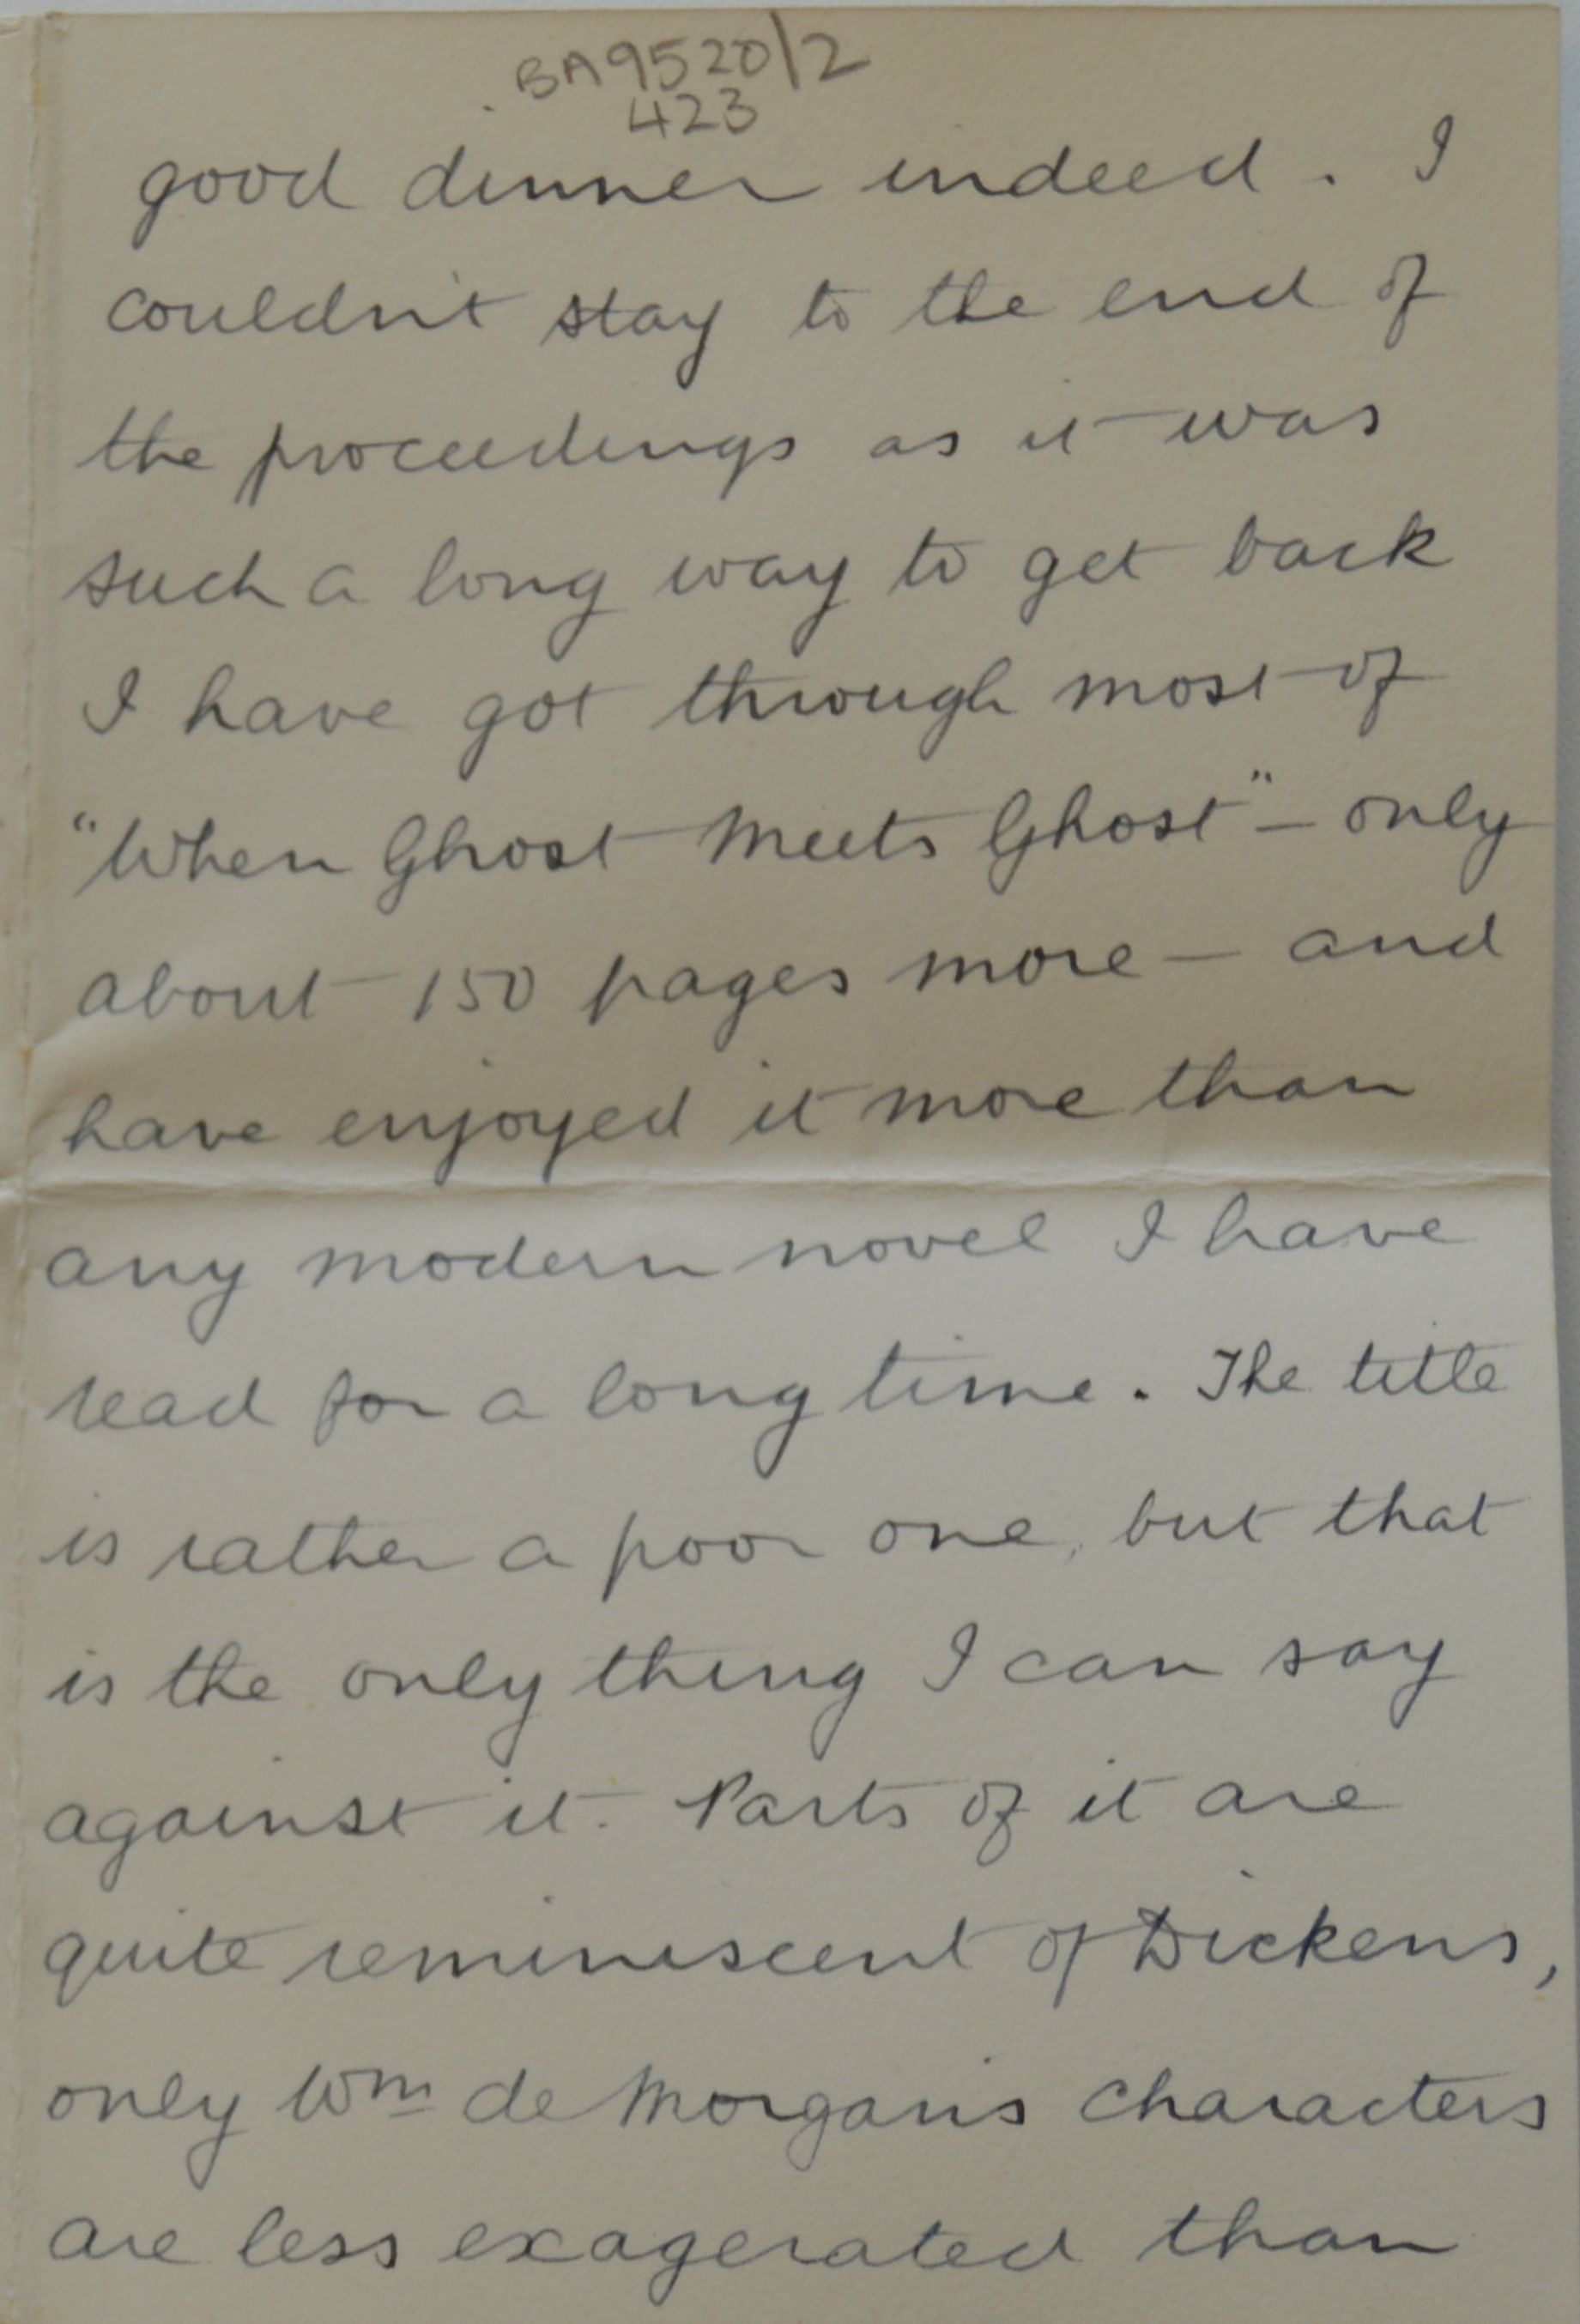 BA9520/2
423
good dinner indeed. I
couldn't stay to the end of
the proceedings as it was
such a long way to get back
I have got through most of
"When Ghost Meets Ghost" – only
about 150 pages more – and
have enjoyed it more than
any modern novel I have
read for a long time. The title
is rather a poor one, but that
is the only thing I can say
against it. Parts of it are
quite reminiscent of Dickens,
only Wm de Morgan's characters
are less exagerated than